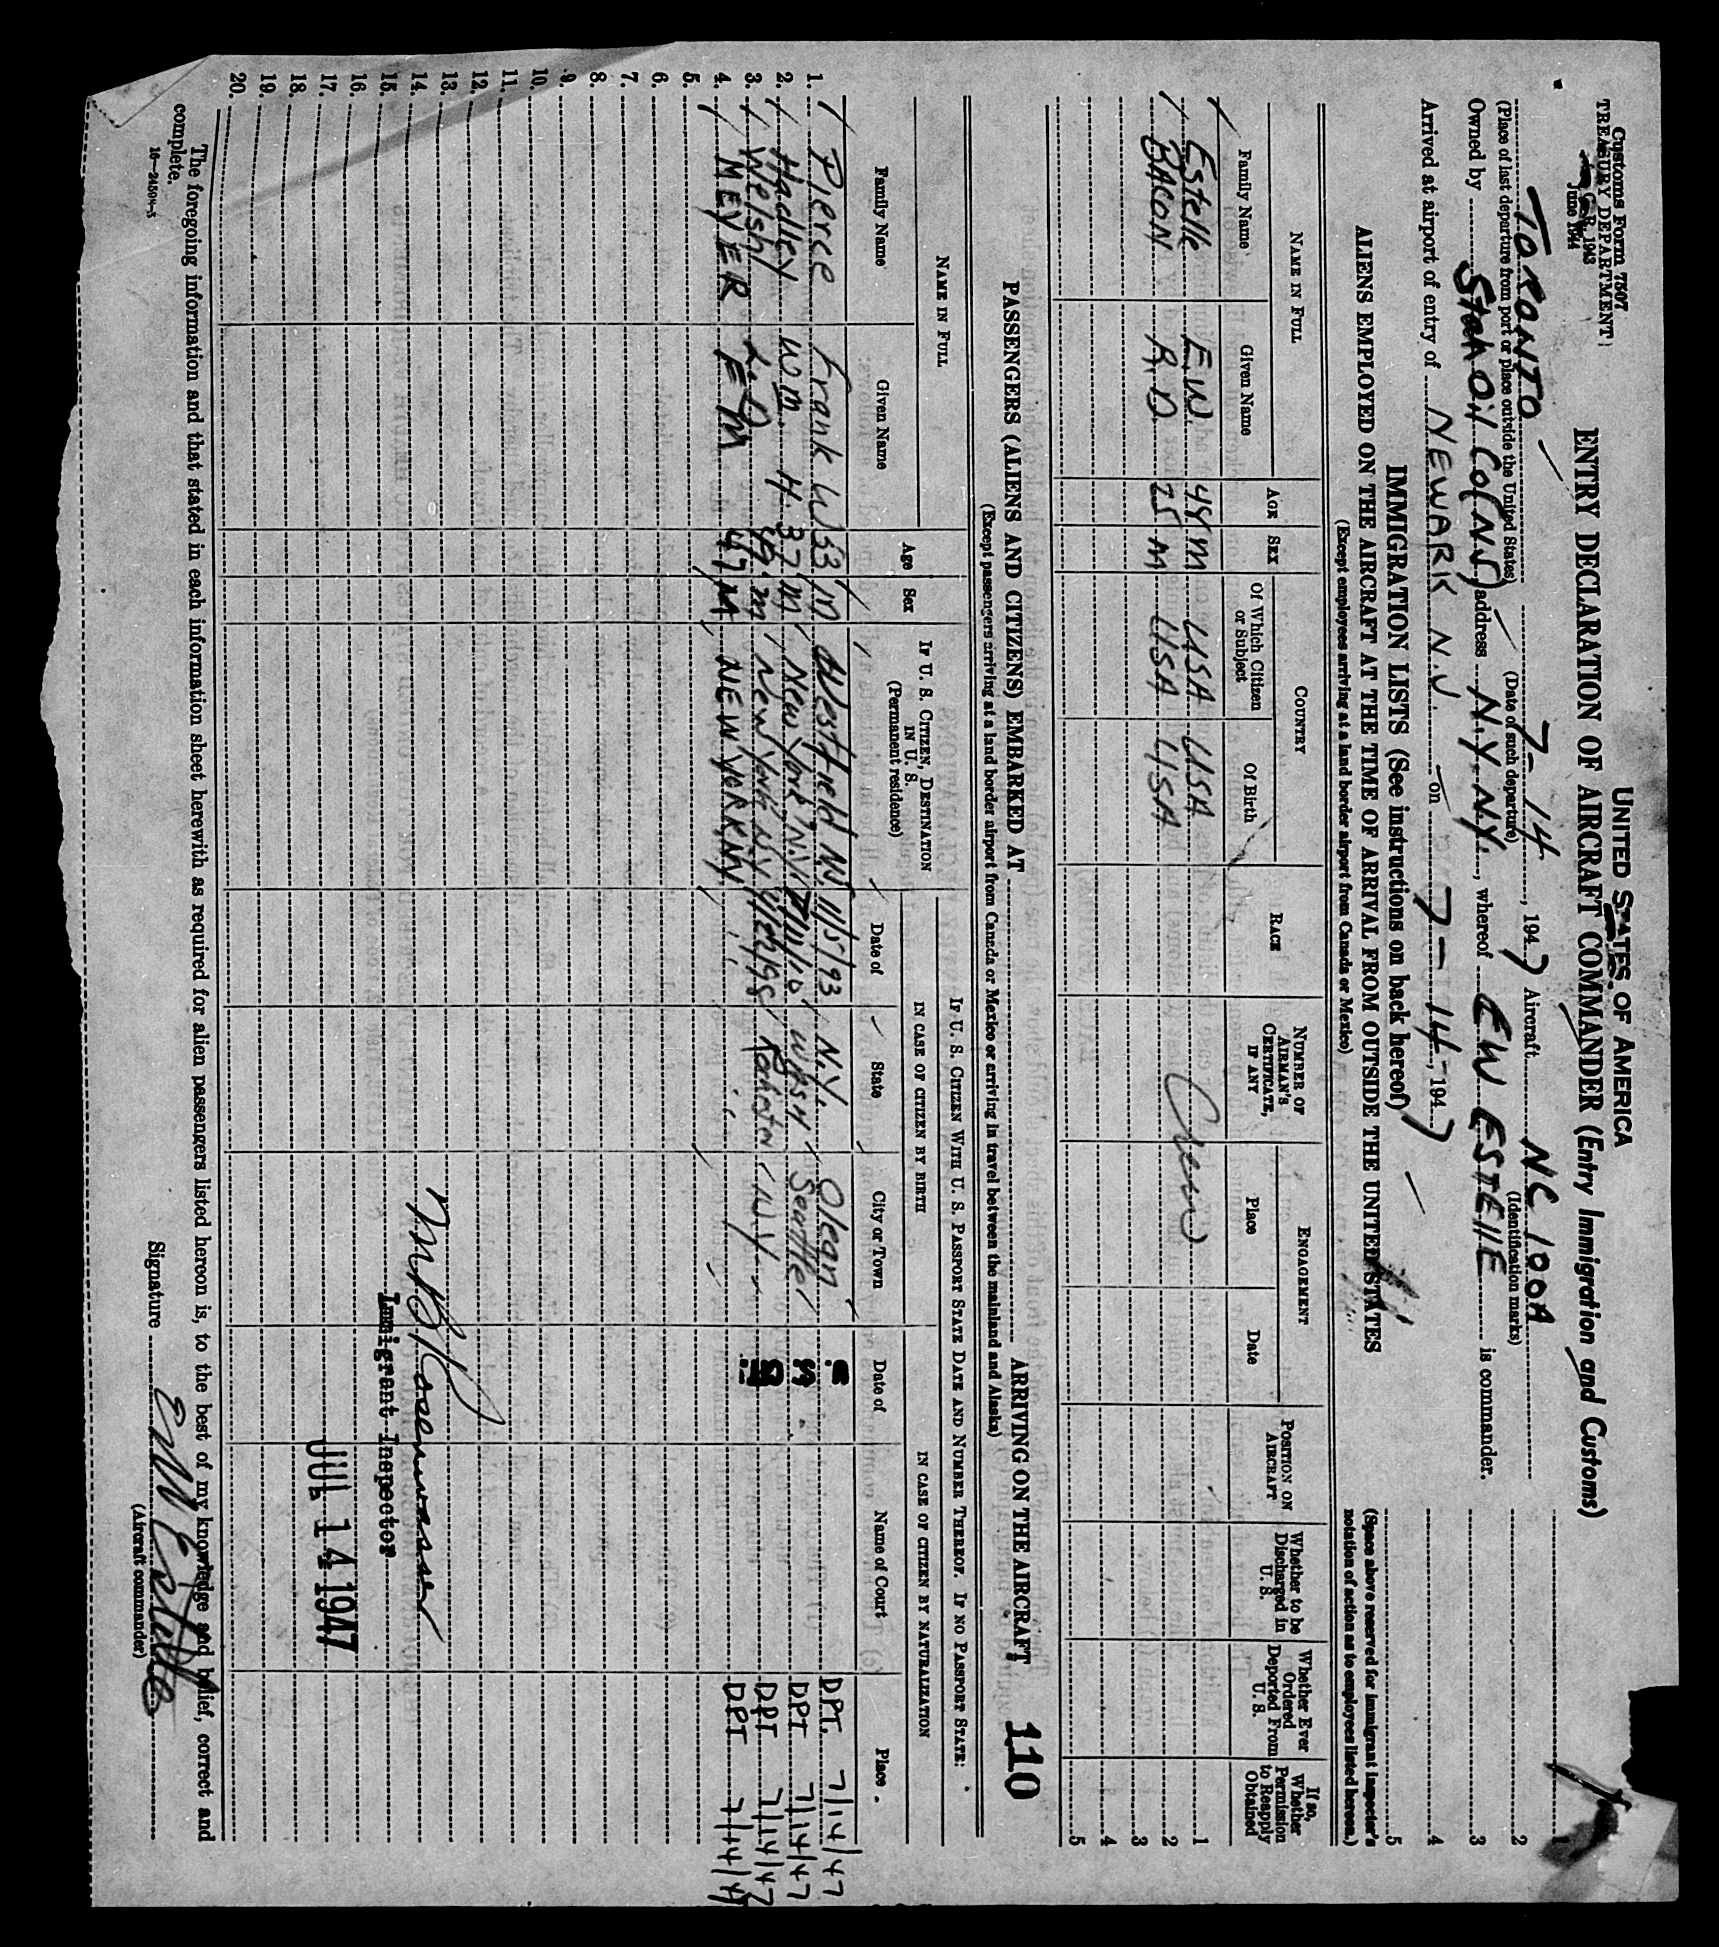 Customs Form 7507
TREASURY DEPARTMENT
1943
June 1944
UNITED STATES OF AMERICA
ENTRY DECLARATION OF AIRCRAFT COMMANDER (Entry Immigration and Customs)
TORONTO 7-14, 1947 Aircraft NC 100A
(Place of last departure from port or place outside the United States) (Date of such departure) (Identification marks)
Owned by Stan Oil Co (NJ) address N.Y. N.Y., whereof EW ESTELLE is commander.
Arrived at airport of entry of NEWARK N.J. on 7-14-, 1947
1
2
3
4
5
IMMIGRATION LISTS (See instructions on back hereof)
ALIENS EMPLOYED ON THE AIRCRAFT AT THE TIME OF ARRIVAL FROM OUTSIDE THE UNITED STATES
(Except employees arriving at a land border airport from Canada or Mexico)
(Space above reserved for immigrant inspector's notation of action as to employees listed hereon.)
NAME IN FULL AGE SEX COUNTRY RACE NUMBER OF AIRMAN'S CERTIFICATE, IF ANY ENGAGEMENT POSITION ON AIRCRAFT Whether to be Discharged in U. S. Whether Ever Ordered Deported From U. S. If so, Whether Permission to Reapply Obtained
Family Name Given Name Of Which Citizen or Subject Of Birth Place Date
Estelle E.W. 44 M USA USA 1
BACON A.D. 25 M USA USA Crew 2
3
4
5
PASSENGERS (ALIENS AND CITIZENS) EMBARKED AT ARRIVING ON THE AIRCRAFT 110
(Except passengers arriving at a land border airport from Canada or Mexico or arriving in travel between the mainland and Alaska)
NAME IN FULL Age Sex IF U. S. CITIZEN, DESTINATION IN U. S. (Permanent residence) IF U. S. CITIZEN WITH U. S. PASSPORT STATE DATE AND NUMBER THEREOF. IF NO PASSPORT STATE:
IN CASE OF CITIZEN BY BIRTH IN CASE OF CITIZEN BY NATURALIZATION
Family Name Given Name Date of State City or Town Date of Name of Court Place
1. Pierce Frank W 53 m Westfield N.J. 11/5/93 N.Y. Olean DPT. 7/14/47
2. Hadley Wm. H. 37 m New York N.Y. Seattle DPT 7/14/47
3. Welsh L.D. 49 m New York N.Y. N.Y. DPT 7/14/47
4. MEYER E M 47 M NEW YORK N.Y. DPT 7/14/47
5.
6.
7.
8.
9.
10.
11.
12.
13.
14.
15. Immigrant Inspector
16.
17. JUL 14 1947
18.
19.
20.
The foregoing information and that stated in each information sheet herewith as required for alien passengers listed hereon is, to the best of my knowledge and belief, correct and
complete.
16-24504-3 Signature E W Estelle
(Aircraft commander)